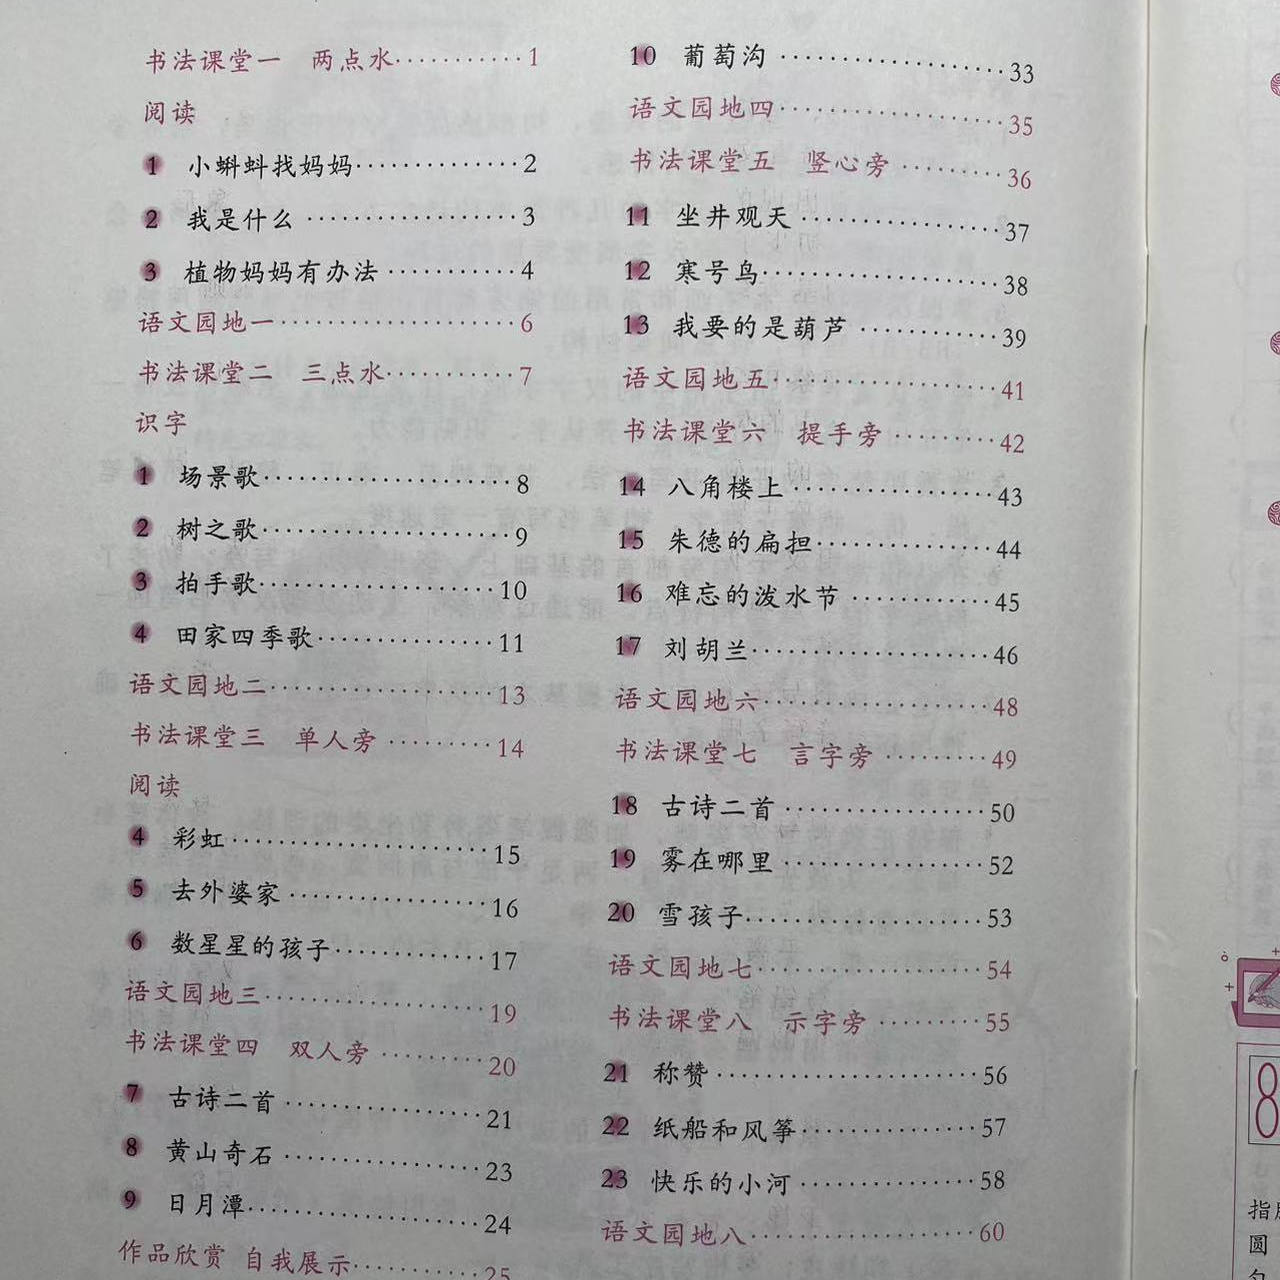 书法课堂一 两点水…………1
阅读
1 小蝌蚪找妈妈……………2
2 我是什么……………3
3 植物妈妈有办法…………4
语文园地一……………6
书法课堂二 三点水…………7
识字
1 场景歌……………8
2 树之歌……………9
3 拍手歌……………10
4 田家四季歌……………11
语文园地二……………13
书法课堂三 单人旁…………14
阅读
4 彩虹……………15
5 去外婆家……………16
6 数星星的孩子……………17
语文园地三……………19
书法课堂四 双人旁…………20
7 古诗二首……………21
8 黄山奇石……………23
9 日月潭……………24
作品欣赏 自我展示…………25
10 葡萄沟……………33
语文园地四……………35
书法课堂五 竖心旁…………36
11 坐井观天……………37
12 寒号鸟……………38
13 我要的是葫芦…………39
语文园地五……………41
书法课堂六 提手旁…………42
14 八角楼上……………43
15 朱德的扁担……………44
16 难忘的泼水节…………45
17 刘胡兰……………46
语文园地六……………48
书法课堂七 言字旁…………49
18 古诗二首……………50
19 雾在哪里……………52
20 雪孩子……………53
语文园地七……………54
书法课堂八 示字旁…………55
21 称赞……………56
22 纸船和风筝……………57
23 快乐的小河……………58
语文园地八……………60
8
圆